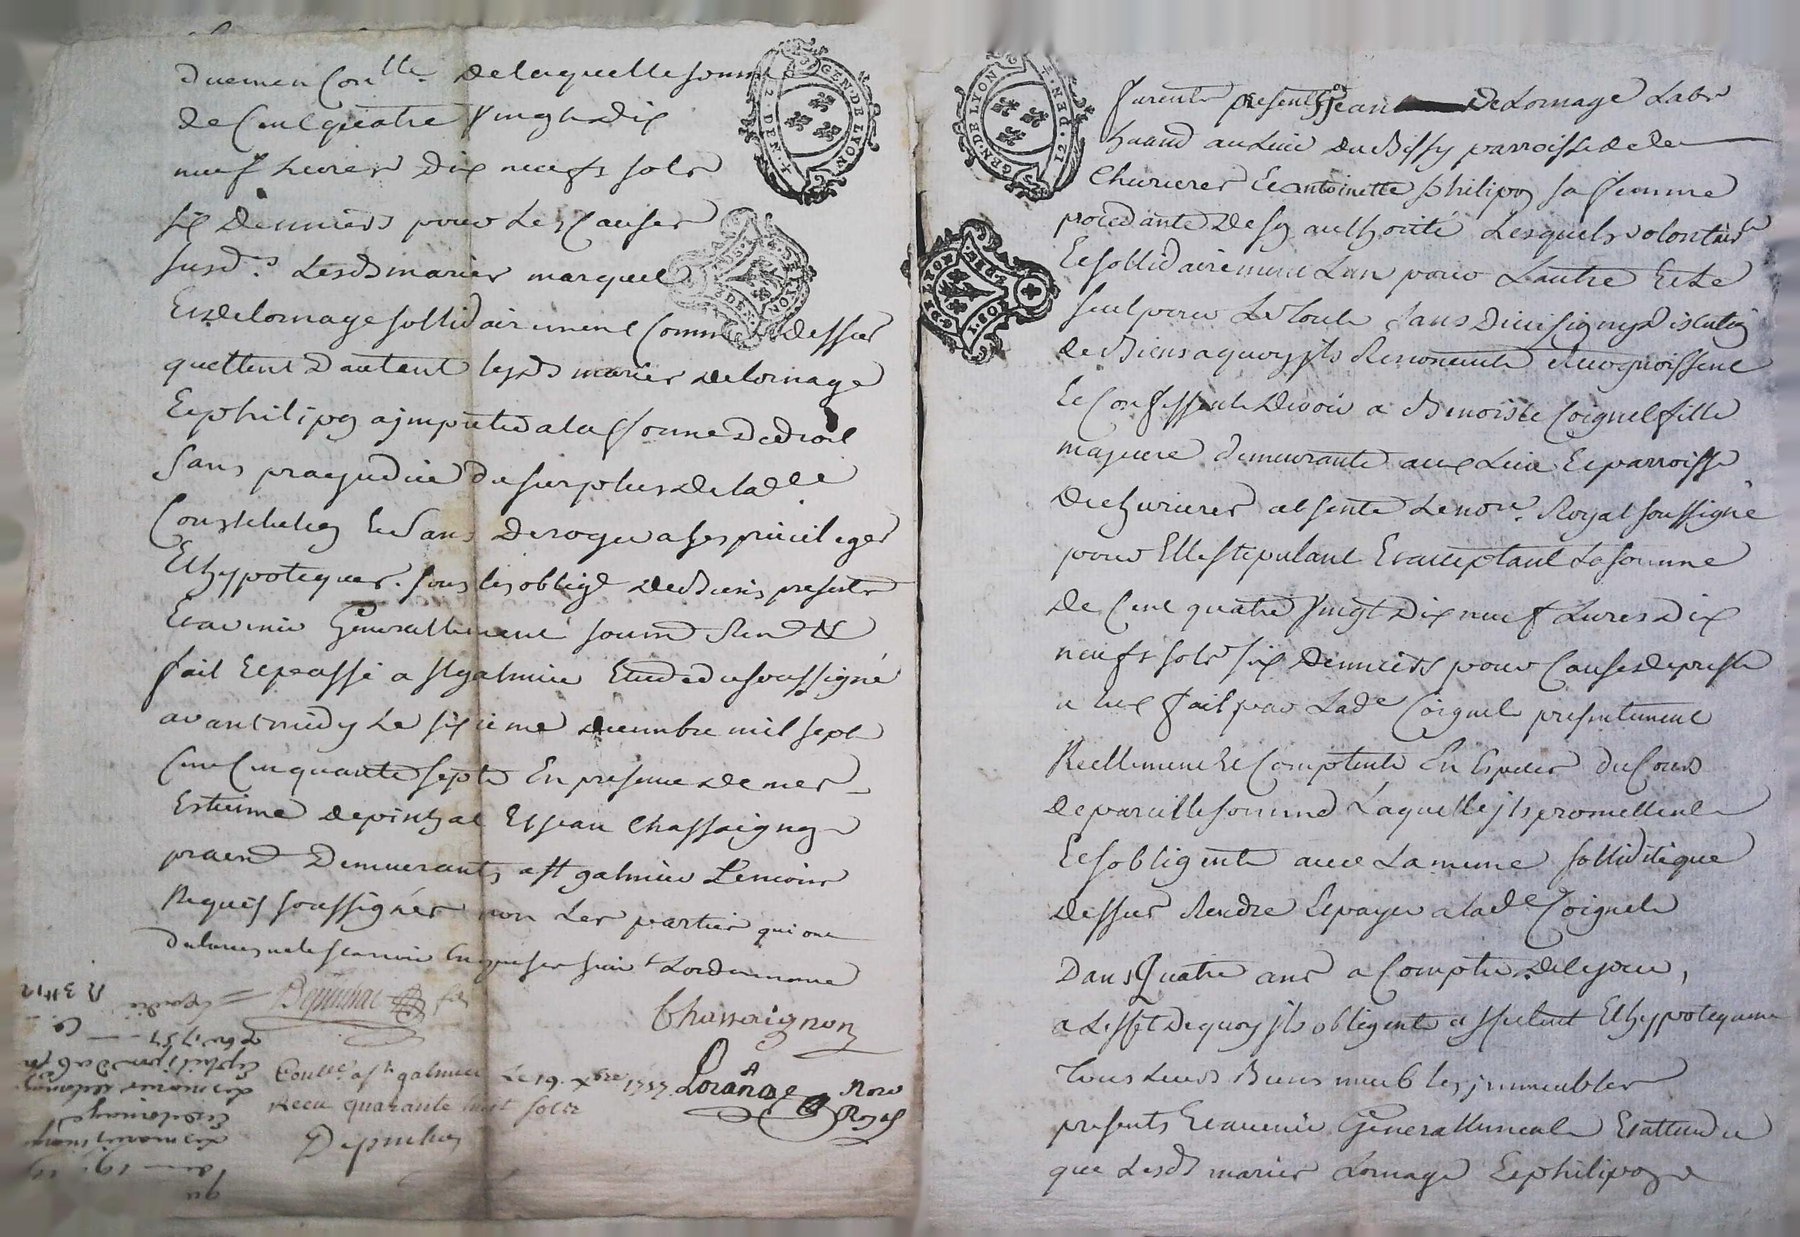 duemen Con.lle delaquelle somme
de Cent quatre vingts dix
neuf Livres dix neufs sols
six deniers pour Les Causes
susd.s Lesds mariés marquel
Et delomage sollidairement Comme dessus
quittent dautant lesds mariés delomage
Et philipon a imputer a la somme
sans prejudice du surplus de lad.e
Constitution Et sans deroger a ses privileges
Et hypoteques. sous les oblig.s de biens presents
Et avenir Generallement soumd Rend &
fait Et passé a st galmier Etude du soussigné
avant midy Le sixieme decembre mil sept
Cent Cinquante sept En presence de mes
Estienne depinhac Et jean Chassaignon
praend demeurants a st galmier temoins
Requis soussignés non Les parties qui ont
declaré ne le scavoir Enquises suivt Lordonnance
Depinhac fils
Chassaignon
Conllé a st galmier Le 19. Xbre 1757
Reçu quarante huit sols
Depinhac
Lorange Nore
Royal
GEN. DE LYON
furent presents Jean delomage Labo
huand au Lieu du Bissy parroisse de
Chevrieres Et antoinette philipon sa femme
procedante de son authorité Lesquels volontairt
Et sollidairement Lun pour Lautre Et Le
seul pour Le tout sans Division ny discution
de Biens a quoy ils Renoncent Recognoissent
Et Confessent devoir a Benoiste Coignet fille
majeure demeurante au Lieu Et parroisse
de chevrieres absente Le nore. Royal soussigné
pour Elle stipulant Et acceptant La somme
de Cent quatre vingt Dix neuf Livres Dix
neufs sols six deniers pour Cause de prest
a Eux fait par Lad.e Coignet presentement
Reellement Et Comptent En Especes du Cours
de pareille somme Laquelle ils promettent
Et sobligent avec La meme solliditéque
dessus Rendre Et payer a lad.e Coignet
Dans Quatre ans a Compter de Ce jour,
a Leffet de quoy ils obligent affectent Et hypotequent
tous Leurs Biens meubles, immeubles
presents Et avenir Generallement Et attendu
que Lesds mariés Lomage Et philipon
GEN. DE LYON